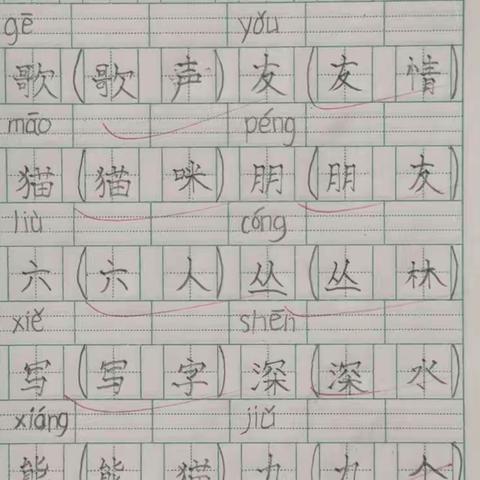 gē yǒu
歌(歌声)友(友情)
māo péng
猫(猫咪)朋(朋友)
liù cóng
六(六人)丛(丛林)
xiě shēn
写(写字)深(深水)
xiáng jiǔ
熊(熊猫)九(九个)